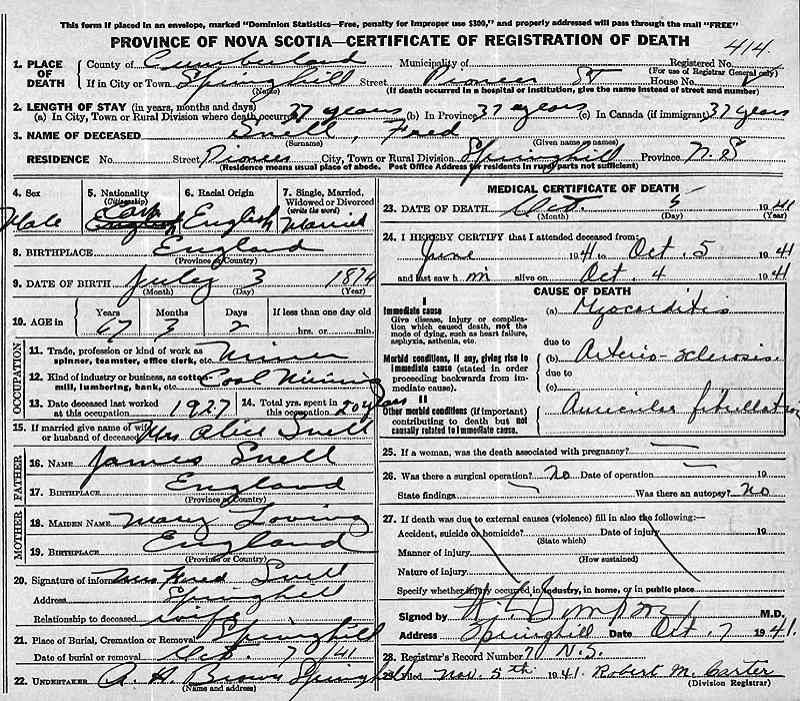 This form if placed in an envelope, marked "Dominion Statistics—Free, penalty for improper use $300," and properly addressed will pass through the mail "FREE"
PROVINCE OF NOVA SCOTIA—CERTIFICATE OF REGISTRATION OF DEATH 414
1. PLACE OF DEATH County of Cumberland Municipality of Registered No.
(For use of Registrar General only)
If in City or Town Springhill Street Pioneer St House No.
(Name) (If death occurred in a hospital or institution, give its name instead of street and number)
2. LENGTH OF STAY (in years, months and days)
(a) In City, Town or Rural Division where death occurred 37 years (b) In Province 37 years (c) In Canada (if immigrant) 37 years
3. NAME OF DECEASED Snell, Fred
(Surname) (Given name or names)
RESIDENCE No. Street Pioneer City, Town or Rural Division Springhill Province N.S
(Residence means usual place of abode. Post Office Address for residents in rural parts not sufficient)
4. Sex Male
5. Nationality (Citizenship) Can
6. Racial Origin English
7. Single, Married, Widowed or Divorced (write the word) Married
8. BIRTHPLACE England
(Province or Country)
9. DATE OF BIRTH July 3 1874
(Month) (Day) (Year)
10. AGE in Years Months Days If less than one day old
67 3 2 hrs. or min.
OCCUPATION
11. Trade, profession or kind of work as spinner, teamster, office clerk, etc. Miner
12. Kind of industry or business, as cotton mill, lumbering, bank, etc. Coal Mining
13. Date deceased last worked at this occupation 1927
14. Total yrs. spent in this occupation 20 years
15. If married give name of wife or husband of deceased Mrs Alice Snell
FATHER
16. NAME James Snell
17. BIRTHPLACE England
(Province or Country)
MOTHER
18. MAIDEN NAME Mary Loving
19. BIRTHPLACE England
(Province or Country)
20. Signature of informant Mrs Fred Snell
Address Springhill
Relationship to deceased wife
21. Place of Burial, Cremation or Removal Springhill
Date of burial or removal Oct. 7 /41
22. UNDERTAKER A. H. Brown Springhill
(Name and address)
MEDICAL CERTIFICATE OF DEATH
23. DATE OF DEATH Oct. 5 1941
(Month) (Day) (Year)
24. I HEREBY CERTIFY that I attended deceased from:
June 1941 to Oct. 5 1941
and last saw him alive on Oct. 4 1941
CAUSE OF DEATH
I
Immediate cause
Give disease, injury or complication which caused death, not the mode of dying, such as heart failure, asphyxia, asthenia, etc.
(a) Myocarditis
due to
Morbid conditions, if any, giving rise to immediate cause (stated in order proceeding backwards from immediate cause).
(b) Arterio-sclerosis
due to
(c)
II
Other morbid conditions (if important) contributing to death but not causally related to immediate cause.
Auricular fibrillation
25. If a woman, was the death associated with pregnancy? —
26. Was there a surgical operation? No Date of operation — 19
State findings — Was there an autopsy? No
27. If death was due to external causes (violence) fill in also the following:—
Accident, suicide or homicide? Date of injury 19
(State which)
Manner of injury
(How sustained)
Nature of injury
Specify whether injury occurred in industry, in home, or in public place
Signed by M.D.
Address Springhill Date Oct. 7 1941.
28. Registrar's Record Number N.S.
29. Filed Nov. 5th 1941. Robert M. Carter
(Division Registrar)